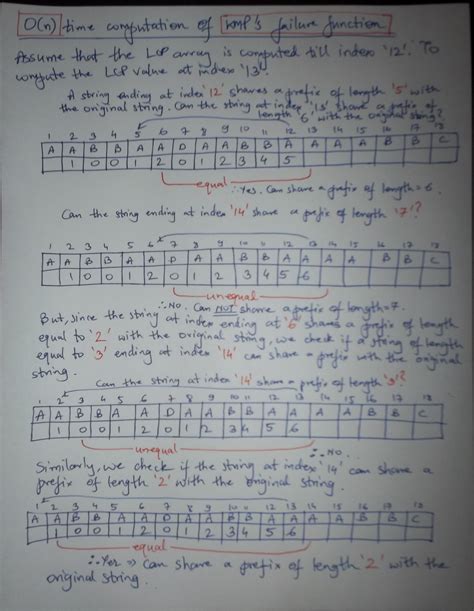 O(n) time computation of KMP's failure function
Assume that the LCP array is computed till index '12'. To
compute the LCP value at index '13'.
A string ending at index '12' shares a prefix of length '5' with
the original string. Can the string at index '13' share a prefix of
length '6' with the original string?
1 2 3 4 5 6 7 8 9 10 11 12 13 14 15 16 17 18
A A B B A A D A A B B A A A A B B C
1 0 0 1 2 0 1 2 3 4 5
equal ∴Yes. Can share a prefix of length=6.
Can the string ending at index '14' share a prefix of length '7'?
1 2 3 4 5 6 7 8 9 10 11 12 13 14 15 16 17 18
A A B B A A D A A B B A A A A B B C
1 0 0 1 2 0 1 2 3 4 5 6
unequal
∴No. Can NOT share a prefix of length=7.
But, since the string at index ending at '6' shares a prefix of length
equal to '2' with the original string, we check if a string of length
equal to '3' ending at index '14' can share a prefix with the original
string.
Can the string at index '14' share a prefix of length '3'?
1 2 3 4 5 6 7 8 9 10 11 12 13 14 15 16 17 18
A A B B A A D A A B B A A A A B B C
1 0 0 1 2 0 1 2 3 4 5 6
unequal ∴No.
Similarly, we check if the string at index '14' can share a
prefix of length '2' with the original string.
1 2 3 4 5 6 7 8 9 10 11 12 13 14 15 16 17 18
A A B B A A D A A B B A A A A B B C
1 0 0 1 2 0 1 2 3 4 5 6
equal
∴Yes ⇒ Can share a prefix of length '2' with the
original string.